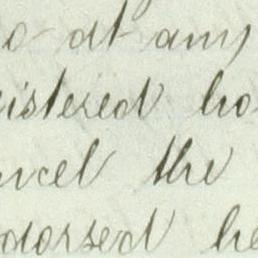 o at any
istered ho
ncel the
dorsed he